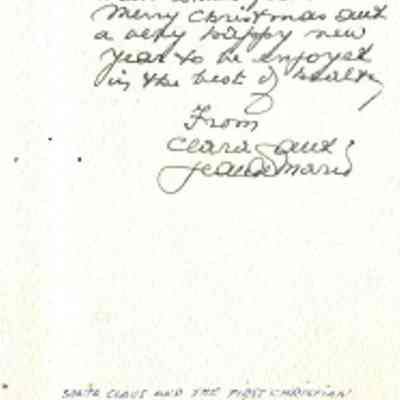 Merry Christmas and
a very happy new
year to be enjoyed
in the best of health
From
Clara and
Jean Marie
SANTA CLAUS AND THE FIRST CHRISTIAN